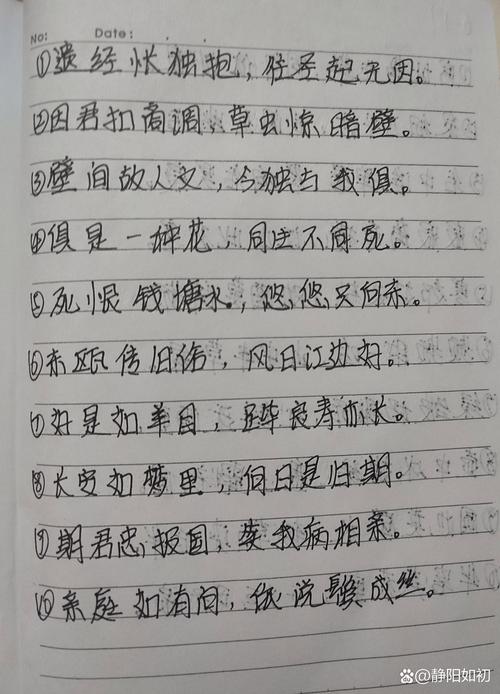 No: Date:
①遗经怅独抱，往圣起无因。
②因君扣商调，草虫惊暗壁。
③壁间故人文，今独与我俱。
④俱是一种花，同生不同死。
⑤死恨钱塘水，悠悠只向东。
⑥东瓯传旧俗，风日江边好。
⑦好是如羊目，良寿亦长。
⑧长安如梦里，何日是归期。
⑨期君忠报国，美我病相亲。
⑩亲庭如有问，依说鬓成丝。
@静阳如初